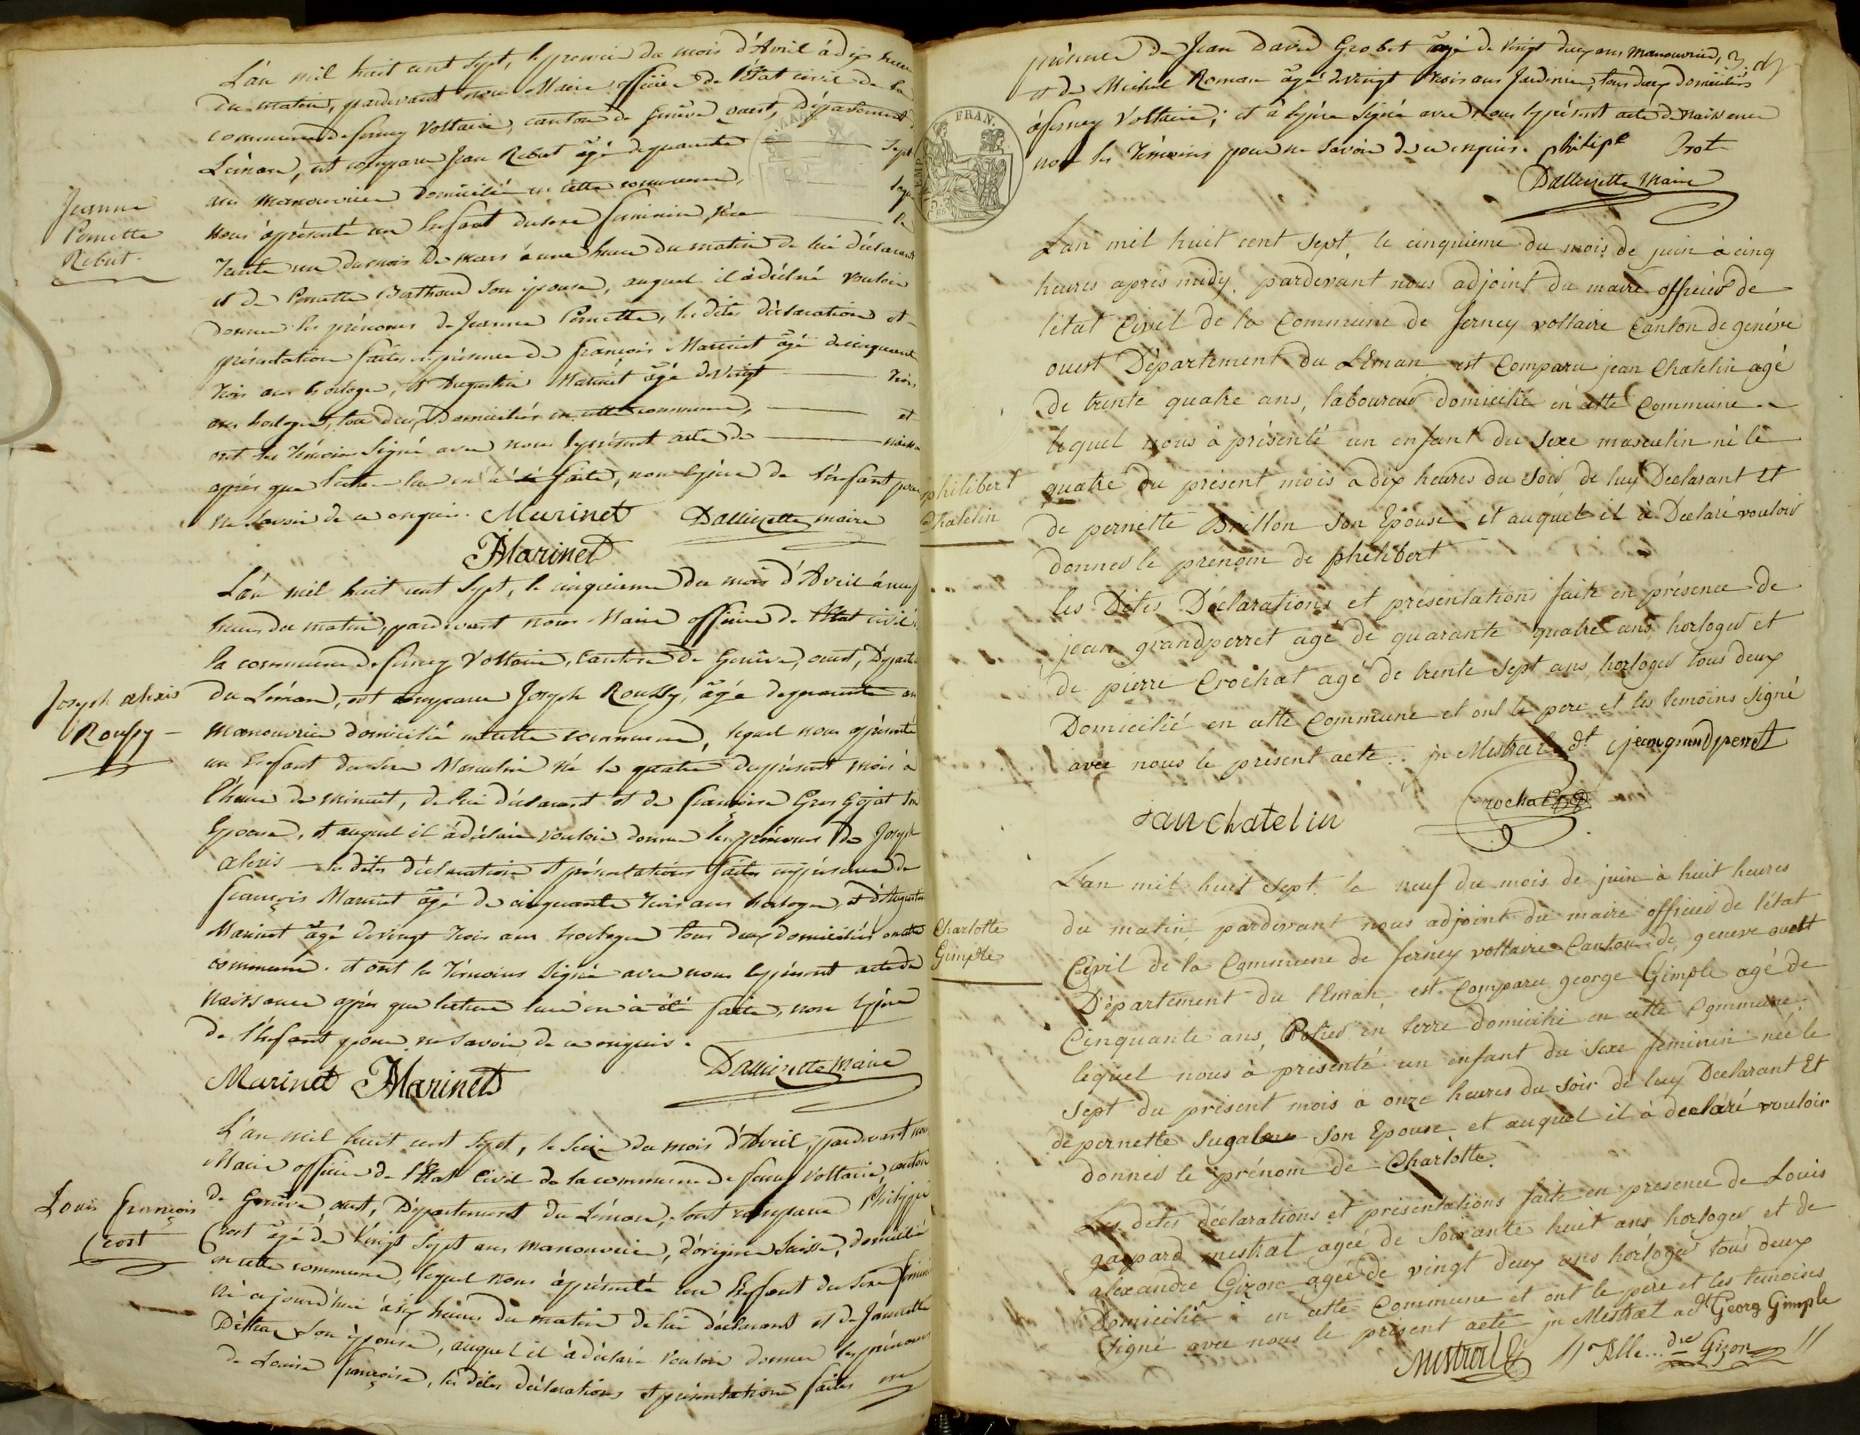 L'an mil huit cent sept, le premier du mois d'Avril à dix heures
du matin, pardevant nous Maire officier de l'état civil de la
commune de ferney Voltaire, canton de Genève ouest, Département
Léman, est comparu Jean Rebut âgé de quarante sept
ans manouvrier domicilié en cette commune, lequel
nous à présenté un Enfant du sexe feminin née le
trente un du mois de mars à une heure du matin de lui déclarant
et de Pernette Berthoud son épouse, auquel il à déclaré vouloir
donner les prénoms de Jeanne Pernette, les dites déclaration et
présentation faites en présence de françois Marinet âgé de cinquante
trois ans horloger, et Augustin Marinet âgé de Vingt trois
ans horloger, tous deux Domiciliés en cette commune, et
ont les témoins Signé avec nous le présent acte de naissa
après que lecture leur en à été faite, non le père de l'enfant pour
ne Savoir de ce enquis. Marinet Dallizette maire
AMarinet
Jeanne
Pernette
Rebut
L'an mil huit cent Sept, le cinquieme du mois d'Avril à neuf
heures du matin, pardevant nous Maire officier de l'Etat civil
la commune de ferney Voltaire, canton de Genève, ouest, Départe
du Léman, est comparu Joseph Roussy, âgé de quarante ans
manouvrier domicilié en cette commune, lequel nous à présenté
un Enfant du sexe Masculin né le quatre du présent mois à
l'heure de minuit, de lui déclarant et de françoise Gros Gojat son
Epouse, et auquel il à déclaré vouloir donner les prénoms de Joseph
alexis les dites déclaration et présentation faites en présence de
françois Marinet âgé de cinquante trois ans horloger, et d'Augustin
Marinet âgé de vingt trois ans horloger tous deux domiciliés en cette
commune. et ont les témoins Signé avec nous le présent acte de
naissance après que lecture leur en à été faite, non le père
de l'Enfant pour ne Savoir de ce enquis.
Marinet AMarinet Dallizette Maire
Joseph alexis
Roussy
L'an mil huit cent Sept, le Seize du mois d'Avril, pardevant nous
Maire officier de l'Etat Civil de la commune de ferney Voltaire, canton
de Genève, ouest, Département du Léman, est comparu Philippe
Crost âgé de Vingt Sept ans manouvrier, d'origine Suisse, domicilié
en cette commune, lequel nous à présenté un Enfant du sexe féminin
né aujourd'hui à six heures du matin de lui déclarant et de Jeannette
son épouse, auquel il à déclaré vouloir donner les prénoms
de Louise françoise, les dites déclarations et présentation faites en
Louis François
Crost
présence de Jean David Grobet âgé de Vingt deux ans manouvrier,
et de Michel Roman âgé de vingt trois ans Jardinier, tous deux domiciliés
à ferney Voltaire; et à le père Signé avec nous le présent acte de naissance
non les témoins pour ne Savoir de ce enquis. philipe Crot
Dallizette Maire
FRAN.
L'an mil huit cent sept, le cinquieme du mois de juin à cinq
heures apres midy, pardevant nous adjoint du maire officier de
l'état Civil de la Commune de ferney voltaire Canton de genéve
ouest Département du Léman est Comparu jean Chatelin agé
de trente quatre ans, laboureur domicilié en cette Commune
lequel nous à présenté un enfant du sexe masculin né le
quatre du présent mois à dix heures du soir de luy Declarant et
de pernette Brillon son Epouse et auquel il à Declaré vouloir
donner le prénom de philibert
les Dites Declarations et présentations faite en présence de
jean grandperret agé de quarante quatre ans, horloger et
de pierre Crochat agé de trente sept ans, horloger tous deux
Domicilié en cette Commune et ont le pere et les temoins signé
avec nous le présent acte. jn Mestral adt jeangrandperret
Jan chatelin Crochat
philibert
Chatelin
L'an mil huit sept le neuf du mois de juin à huit heures
du matin, pardevant nous adjoint du maire officier de l'état
Civil de la Commune de ferney voltaire Canton de geneve ouest
Département du léman est Comparu george Gimple agé de
Cinquante ans, Potier en terre domicilié en cette Commune
lequel nous à présenté un enfant du sexe feminin née le
sept du présent mois à onze heures du soir de luy Declarant et
de pernette son Epouse et auquel il à declaré vouloir
donner le prénom de Charlotte.
Les dites déclarations et présentations faite en presence de Louis
gaspard mestral agée de soixante huit ans horloger et de
alexandre Gizon agée de vingt deux ans horloger tous deux
domicilié en cette Commune et ont le pere et les temoins
signé avec nous le présent acte jn Mestral adt Georg Gimple
Mestral Alle..dre Gizon
Charlotte
Gimple